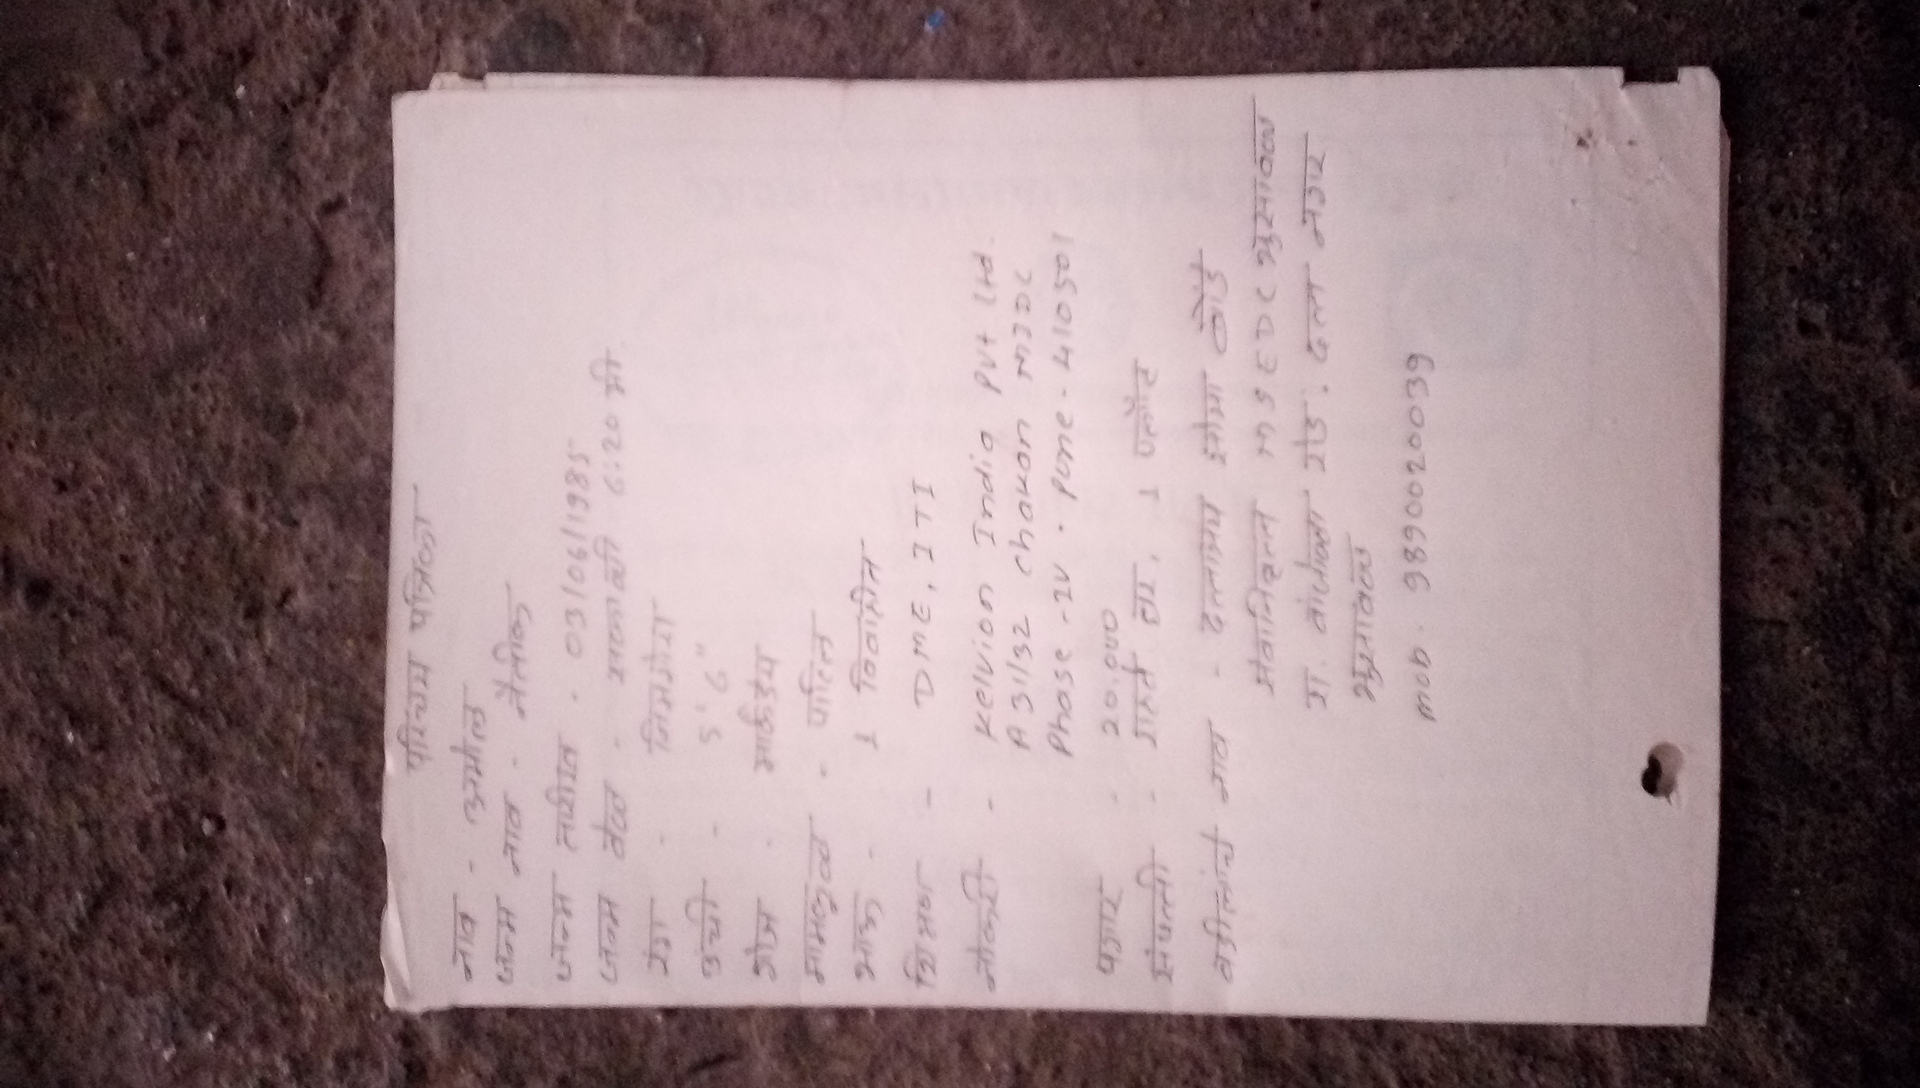 परिचय पत्रिका
नाव - अमोल
जन्म नाव - नैतिक
जन्म तारीख - 03/06/1985
जन्म वेळ - सकाळी 6:20 मी.
रंग - निमगोरा
उंची - 5' 6"
गोत्र -
मामकुळ - पाटिल
भाऊ - 1 विवाहित
शिक्षण - DME, ITI
नोकरी - Kelvion India Pvt Ltd.
A 31/32 chakan MIDC
Phase -IV . Pune - 410501
पगार - 20,000
संपत्ती - राहते घर, 1 प्लॉट
वडीलांचे नाव - दत्तात्रय
सेवानिवृत्त MSEDC भुसावळ
रा. वांजोळा रोड. दत्त नगर
भुसावळ
mob. 9890020039